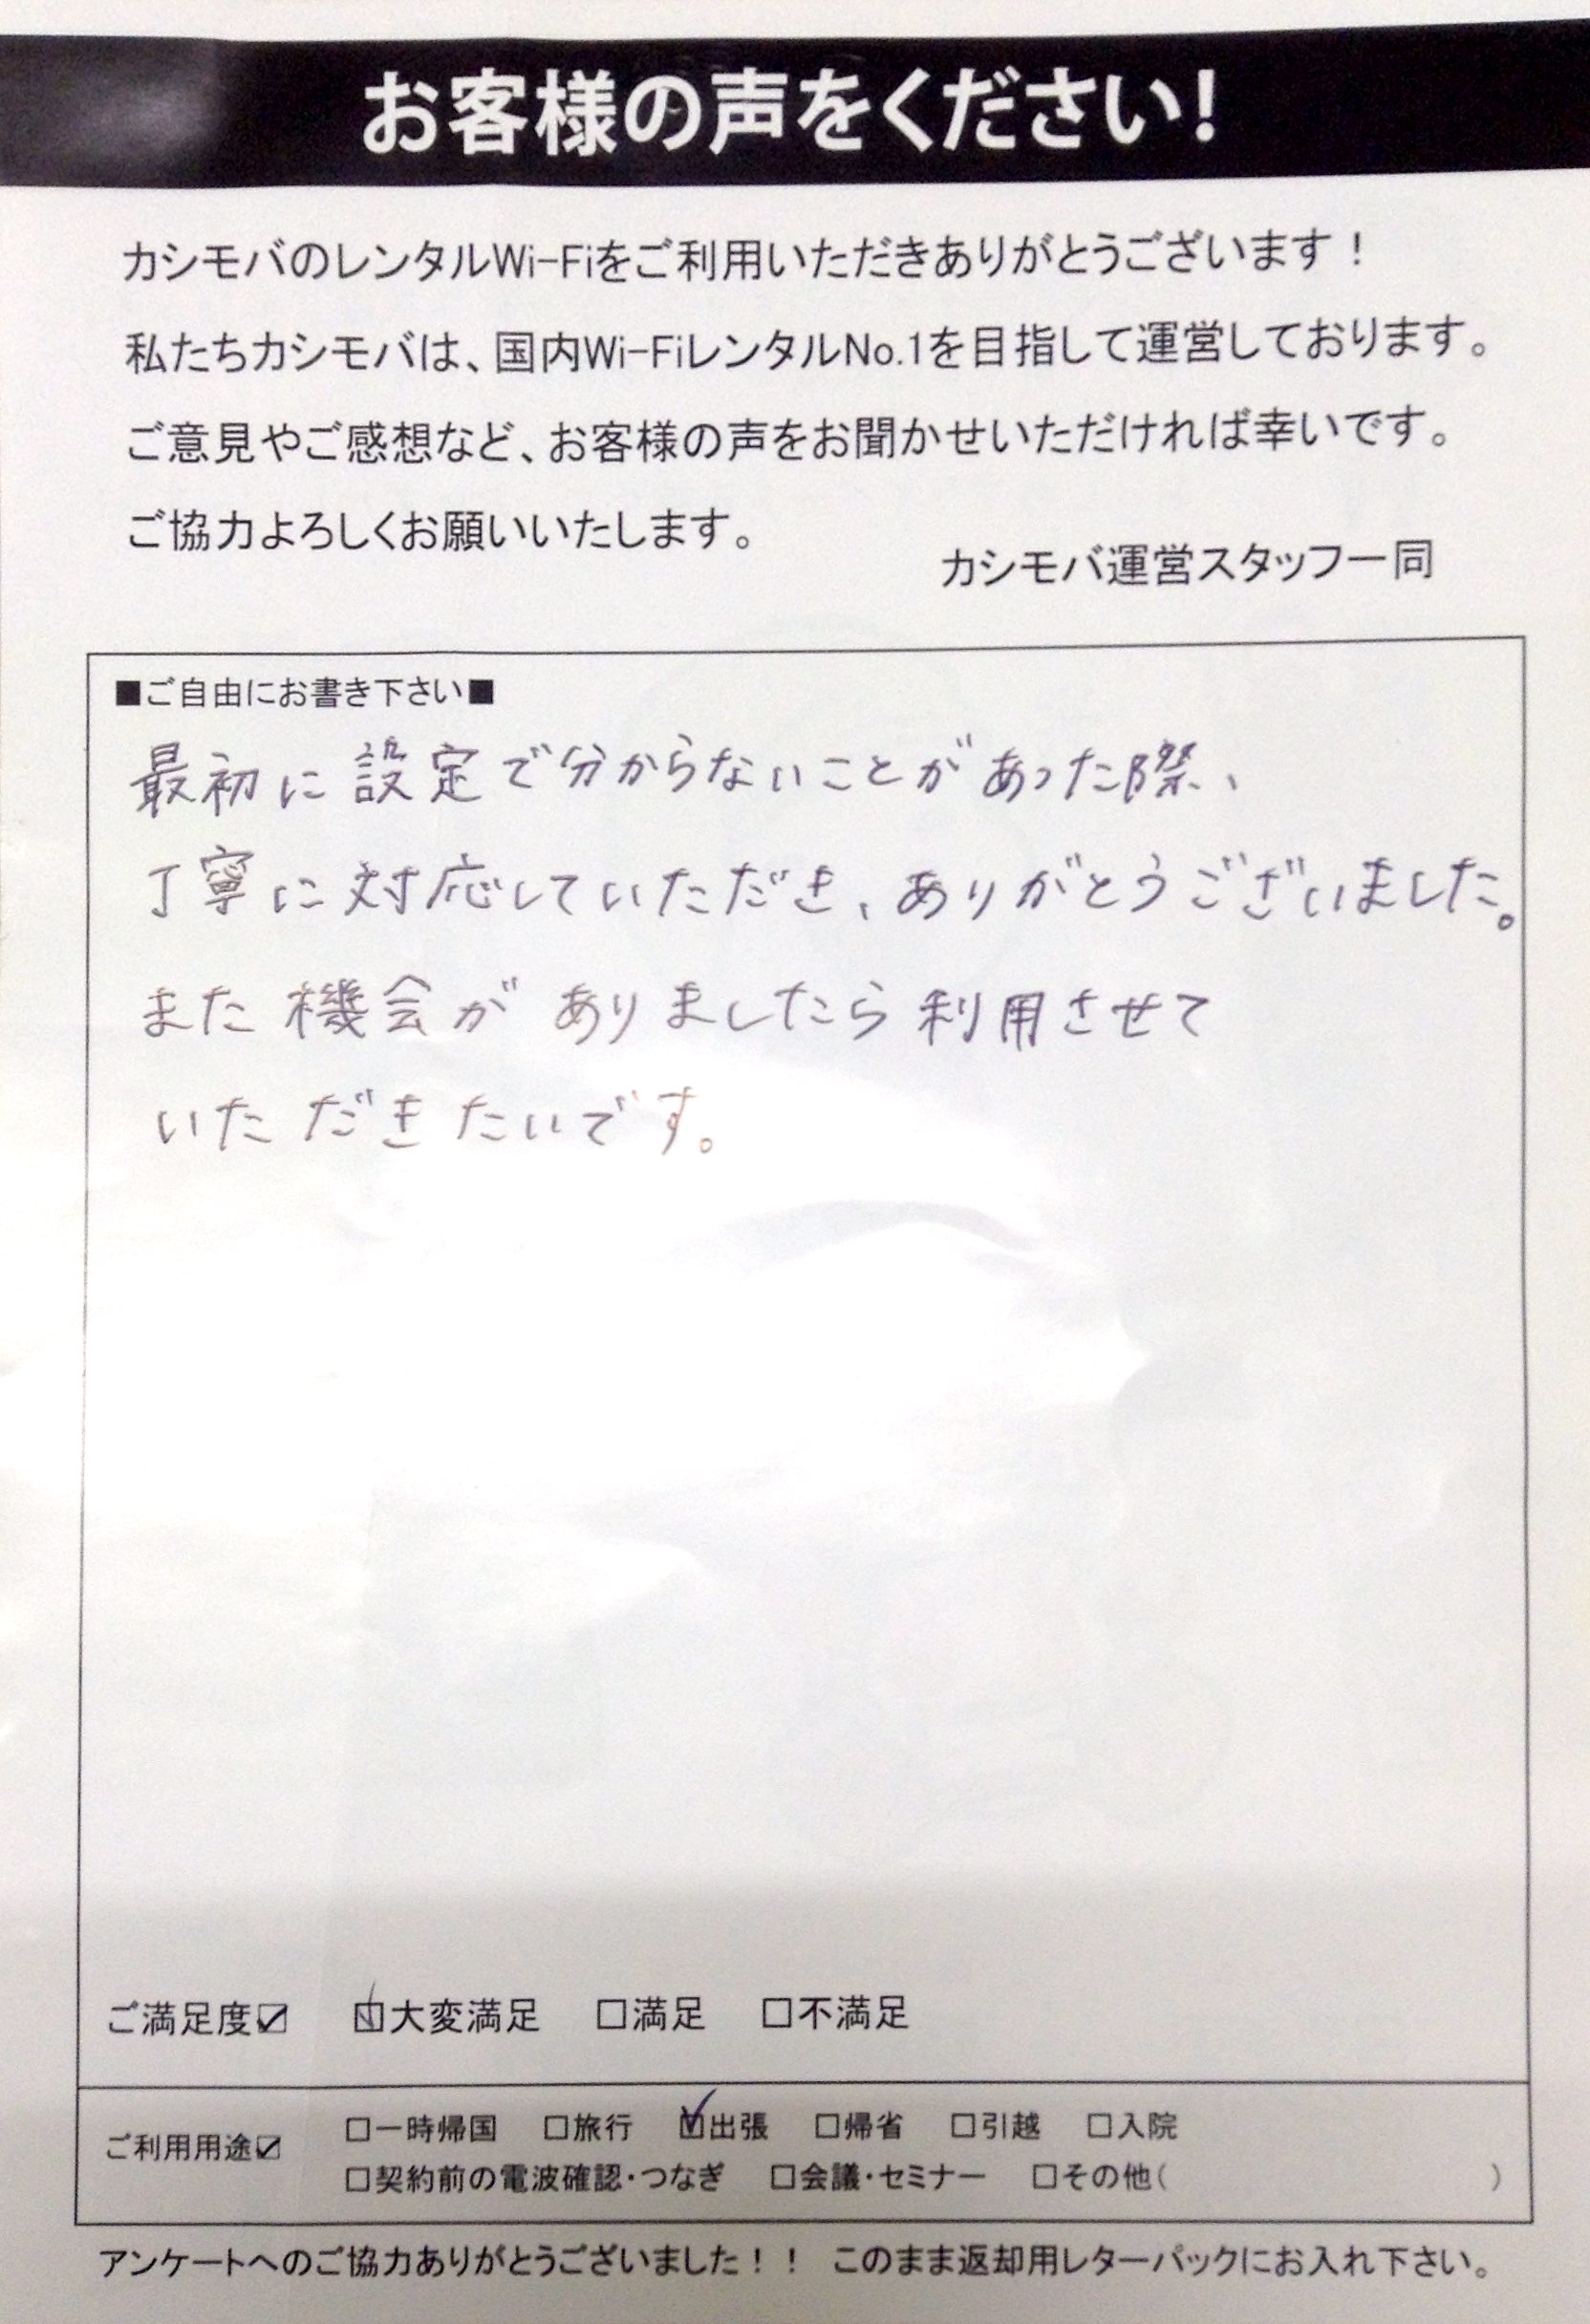 お客様の声をください!
カシモバのレンタルWi-Fiをご利用いただきありがとうございます！
私たちカシモバは、国内Wi-FiレンタルNo.1を目指して運営しております。
ご意見やご感想など、お客様の声をお聞かせいただければ幸いです。
ご協力よろしくお願いいたします。
カシモバ運営スタッフ一同
■ご自由にお書き下さい■
最初に設定で分からないことがあった際、
丁寧に対応していただき、ありがとうございました。
また機会がありましたら利用させて
いただきたいです。
ご満足度☑ ☑大変満足 □満足 □不満足
ご利用用途☑ □一時帰国 □旅行 ☑出張 □帰省 □引越 □入院
□契約前の電波確認・つなぎ □会議・セミナー □その他( )
アンケートへのご協力ありがとうございました！！ このまま返却用レターパックにお入れ下さい。